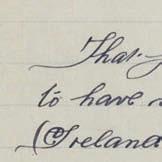 That
to have
(Ireland